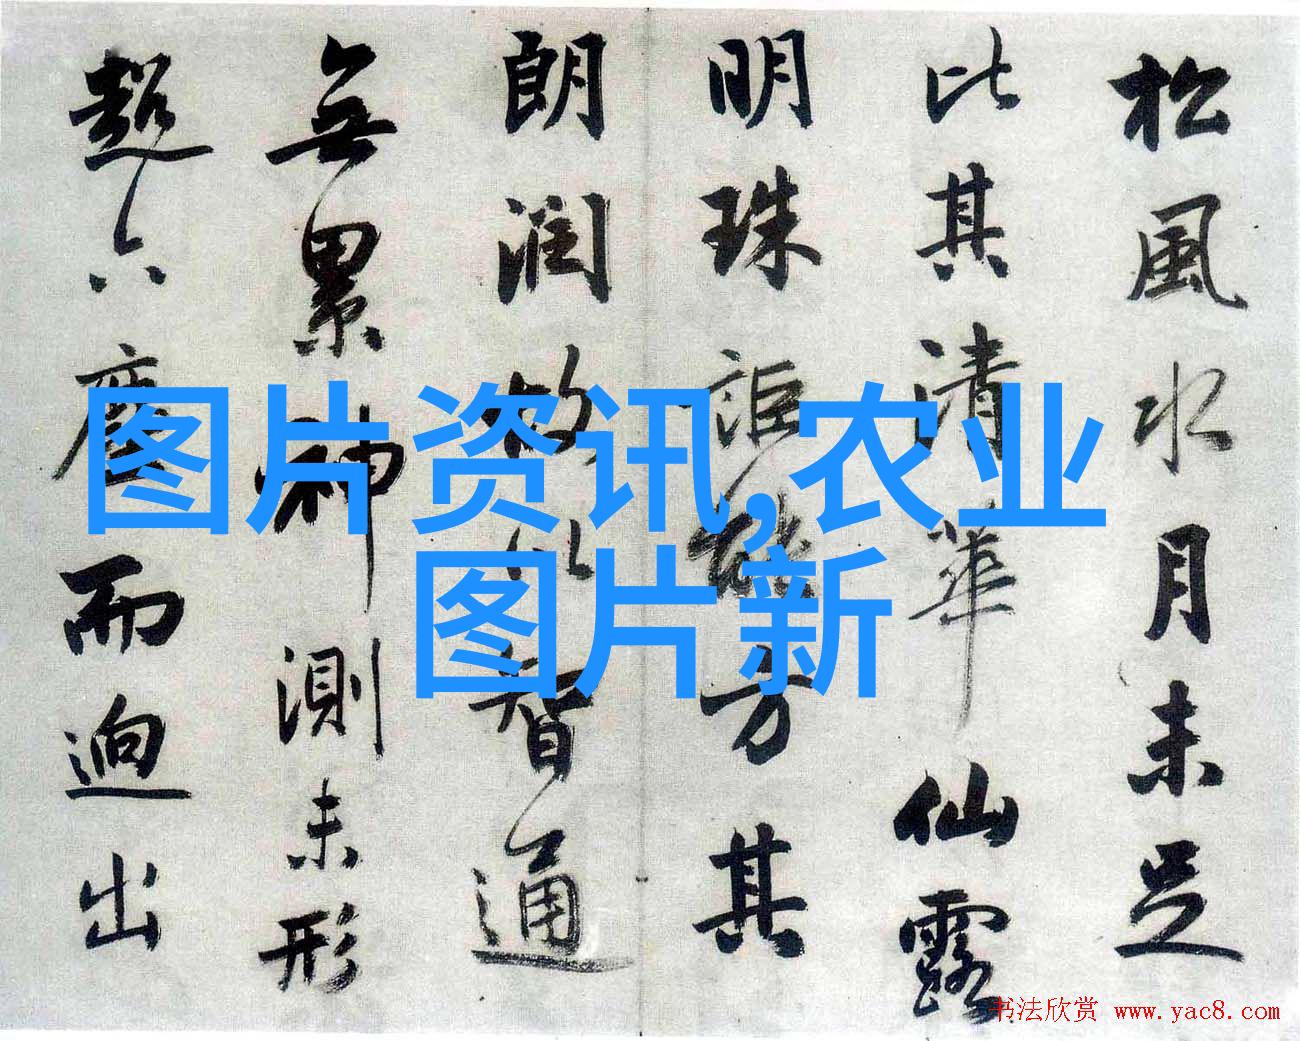 松風水月未足
比其清華仙露
明珠詎能方其
朗潤故以智通
無累神測未形
超六塵而迥出
图片资讯,农业
图片新
书法欣赏 www.yac8.com